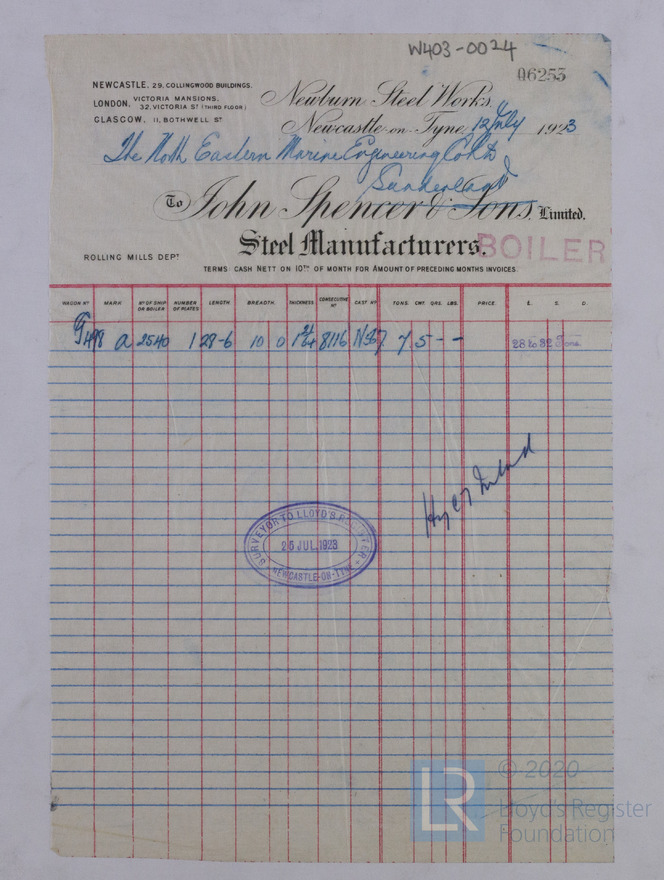 W403-0024
06253
NEWCASTLE, 29, COLLINGWOOD BUILDINGS.
LONDON, VICTORIA MANSIONS, 32, VICTORIA ST (THIRD FLOOR)
GLASGOW, 11, BOTHWELL ST
Newburn Steel Works,
Newcastle-on-Tyne, 12 July 1923
The North Eastern Marine Engineering Co Ltd
Sunderland
To John Spencer & Sons, Limited.
Steel Manufacturers.
BOILER
ROLLING MILLS DEPT
TERMS: CASH NETT ON 10TH OF MONTH FOR AMOUNT OF PRECEDING MONTHS INVOICES
WAGON No MARK No OF SHIP OR BOILER NUMBER OF PLATES LENGTH. BREADTH. THICKNESS CONSECUTIVE No CAST No TONS. CWT. QRS. LBS. PRICE. £. S. D.
498 a 2540 1 28-6 10 0 8116 7 5 - - 28 to 32 Tons.
SURVEYOR TO LLOYD'S REGISTER
25 JUL. 1923
NEWCASTLE-ON-TYNE
LR
© 2020
Lloyd's Register
Foundation